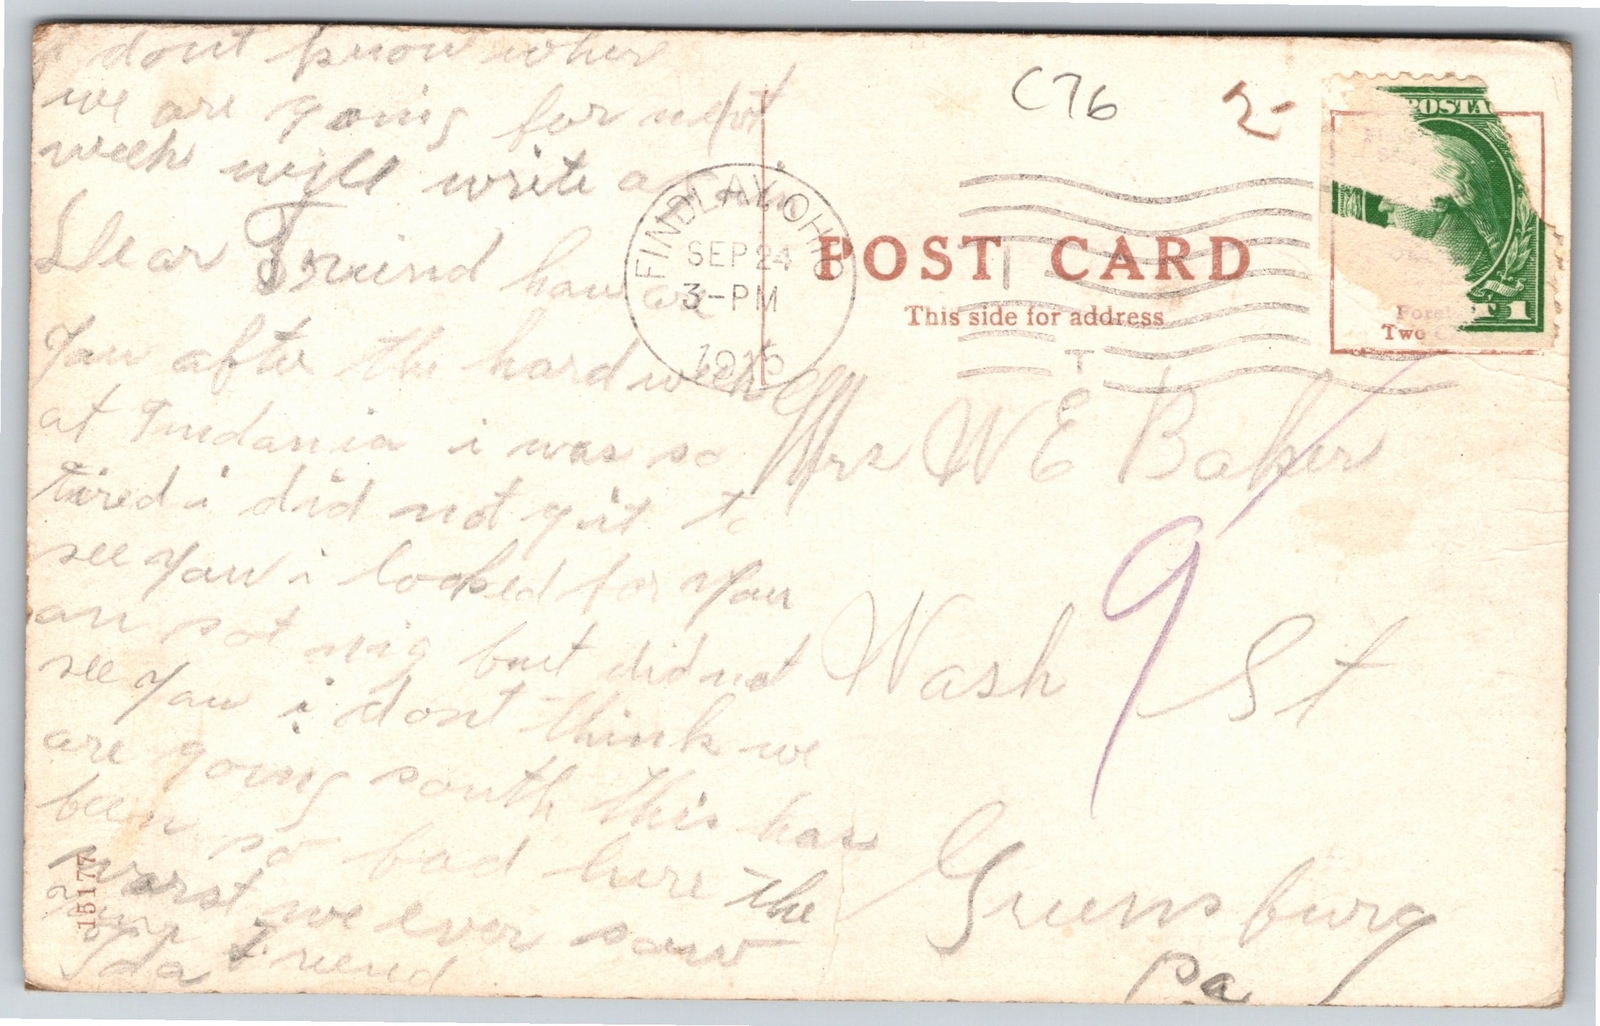 i dont know where
we are going for next
week will write
Dear Freind how are
You after the hard week
at Indania i was so
tired i did not git to
see You i looked for You
on sat nig but did not
see You i dont think we
are going south this has
been so bad here the
worst we ever saw
Your Freiend
Ida
15177
C76
2-
FINDLAY, OHIO
SEP 24
3-PM
1915
POST CARD
This side for address
POSTA
1
Two
T
Mrs W E Baker
9
Wash St
Greensburg
Pa